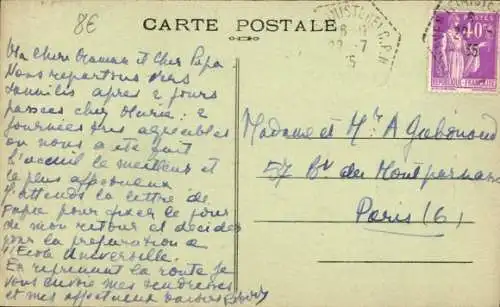 8€
CARTE POSTALE
Ma chère Maman et Cher Papa
Nous repartons vers
après 2 jours
passés chez Marie: 2
journées très agréables
où nous a été fait
l'accueil le meilleur et
le plus affectueux
J'attends la lettre de
Papa pour fixer le jour
de mon retour et décider
pour la préparation à
l'Ecole Universelle.
En reprenant la route je
vous envoie mes tendresses
et mes affectueux baisers
Madame et Mr A
57 Bd du Montparnasse
Paris (6)
40c
POSTES
REPUBLIQUE FRANÇAISE
35